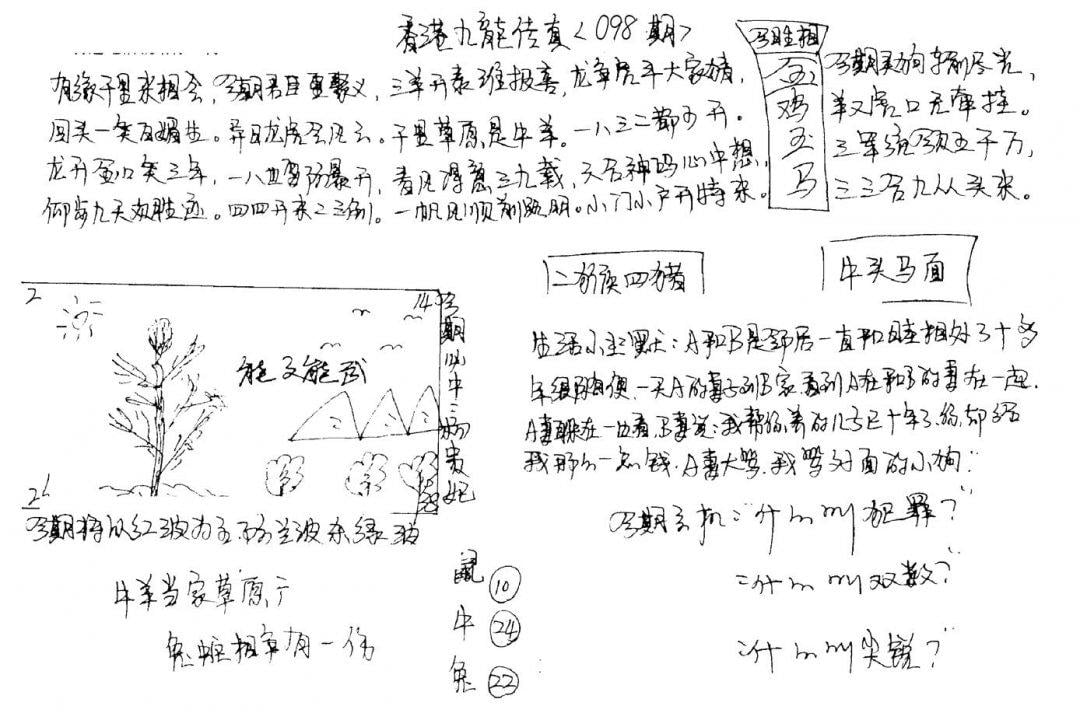 香港九龙传真〈098期〉
有缘千里来相会，今期君臣重聚义，三羊开泰班报喜，龙争虎斗大家猜，
回头一笑百媚生。异日龙虎会风云。千里草原是牛羊。一八三二都可开。
龙开蛋口笑三年，一八四留防暴开，春风得意三九载，天合神码心中想，
仰首九天观胜迹。四四开来二三倒。一帆风顺前路明。小门小户开特来。
今期生相
金
鸡
玉
马
今期灵狗
羊入虎口无牵挂。
三军统领五千万，
三三合九从头来。
二猴四猪
牛头马面
2
14
能文能武
今期必中三杨贵妃
2
今期特以红波为主 防兰波杀绿波
牛羊当家草原广
兔蛇相争有一伤
鼠 10
牛 24
兔 22
生活小主更大：A和B是邻居一直和睦相处了十多
一天A的妻子到B家看到A在和B的妻在一起
A妻躲在一边看，B妻说：我帮你养的儿子已十年了，你却给
我那么一点钱，A妻大骂，我骂对面的小狗！
今期玄机：一什么的犯罪？
二什么的双数？
三什么的尖锐？